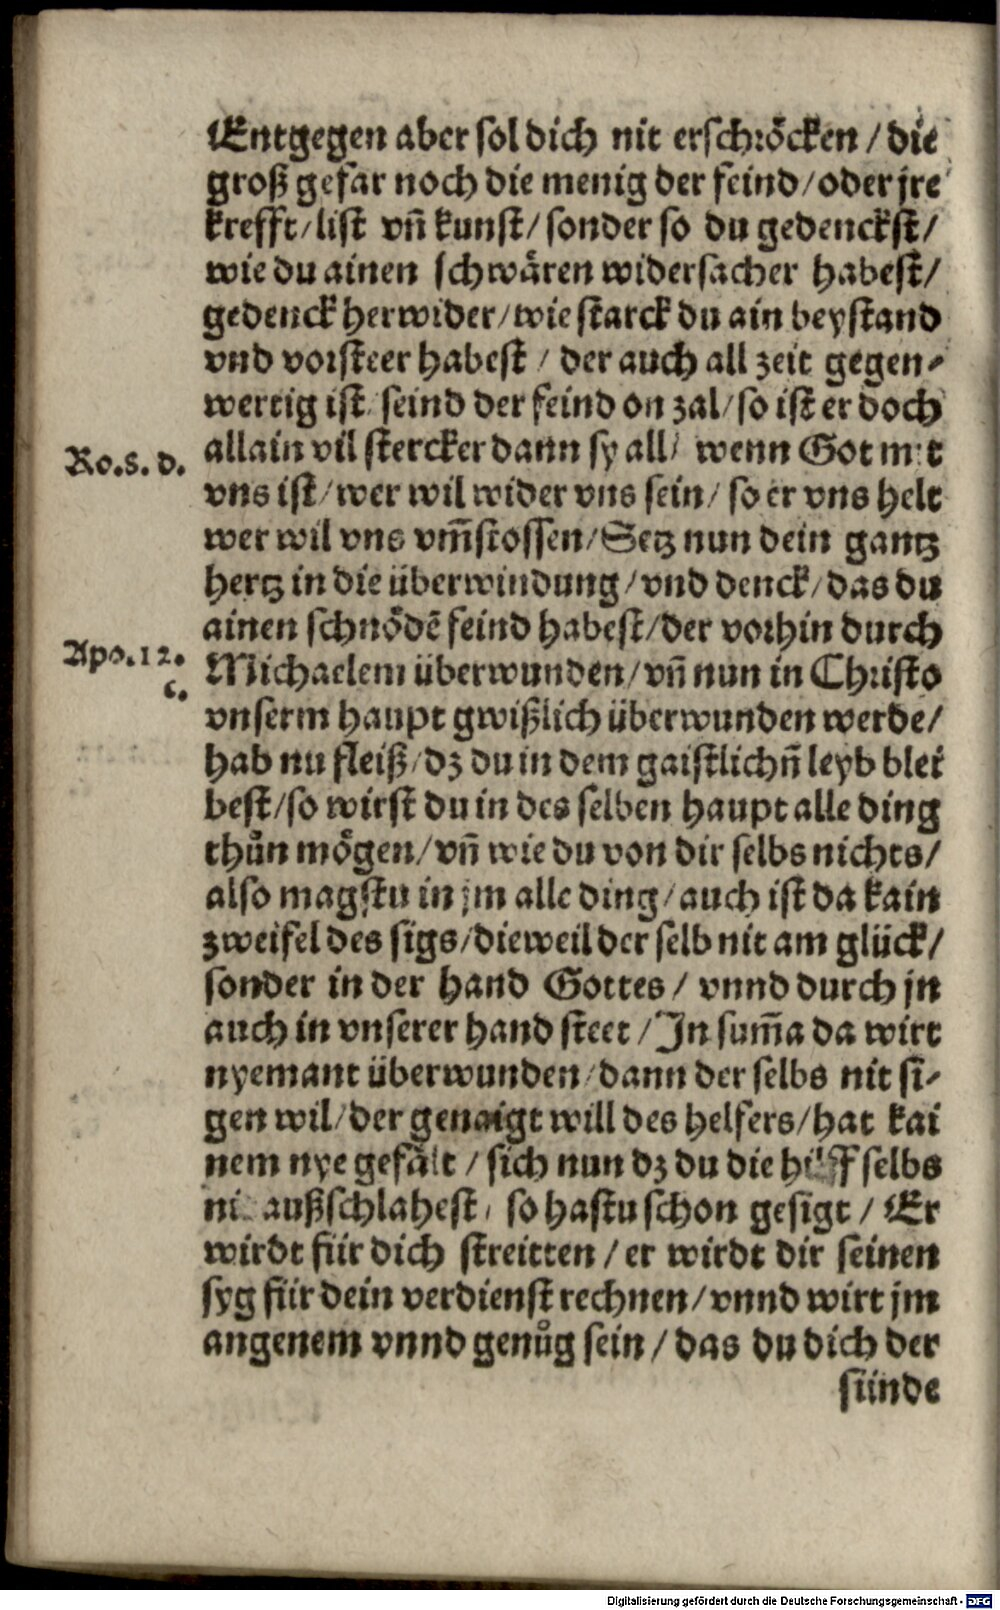 Entgegen aber sol dich nit erschröcken / die
groß gefar noch die menig der feind / oder jre
krefft / list vñ kunst / sonder so du gedenckst /
wie du ainen schwären widersacher habest /
gedenck herwider / wie starck du ain beystand
vnd vorsteer habest / der auch all zeit gegen-
wertig ist / seind der feind on zal / so ist er doch
Ro.8.d.
allain vil stercker dann sy all / wenn Got mit
vns ist / wer wil wider vns sein / so er vns helt
wer wil vns vm̃stossen / Setz nun dein gantz
hertz in die überwindung / vnd denck / das du
ainen schnödē feind habest / der vorhin durch
Apo.12.
c.
Michaelem überwunden / vñ nun in Christo
vnserm haupt gwißlich überwunden werde /
hab nu fleiß / dz du in dem gaistlichñ leyb blei
best / so wirst du in des selben haupt alle ding
thůn mögen / vñ wie du von dir selbs nichts /
also magstu in jm alle ding / auch ist da kain
zweifel des sigs / dieweil der selb nit am glück /
sonder in der hand Gottes / vnnd durch jn
auch in vnserer hand steet / In sum̃a da wirt
nyemant überwunden / dann der selbs nit si-
gen wil / der genaigt will des helfers / hat kai
nem nye gefält / sich nun dz du die hilff selbs
ni außschlahest / so hastu schon gesigt / Er
wirdt für dich streitten / er wirdt dir seinen
syg für dein verdienst rechnen / vnnd wirt jm
angenem vnnd genůg sein / das du dich der
sünde
Digitalisierung gefördert durch die Deutsche Forschungsgemeinschaft - DFG